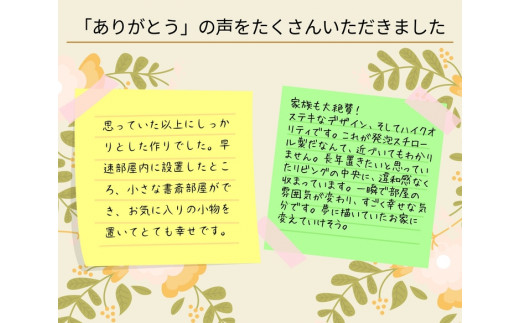 「ありがとう」の声をたくさんいただきました
思っていた以上にしっか
りとした作りでした。早
速部屋内に設置したとこ
ろ、小さな書斎部屋がで
き、お気に入りの小物を
置いてとても幸せです。
家族も大絶賛！
ステキなデザイン、そしてハイクオ
リティです。これが発泡スチロー
ル製だなんて、近づいてもわかり
ません。長年置きたいと思ってい
たリビングの中央に、違和感なく
収まっています。一瞬で部屋の
雰囲気が変わり、すごく幸せな気
分です。夢に描いていたお家に
変えていけそう。